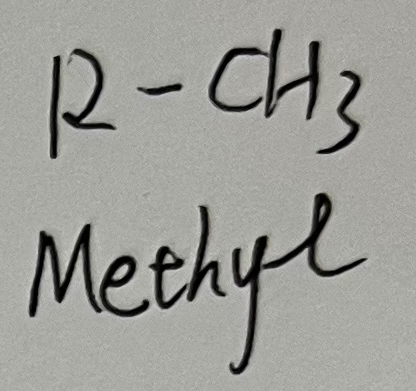 R-CH3
Methyl